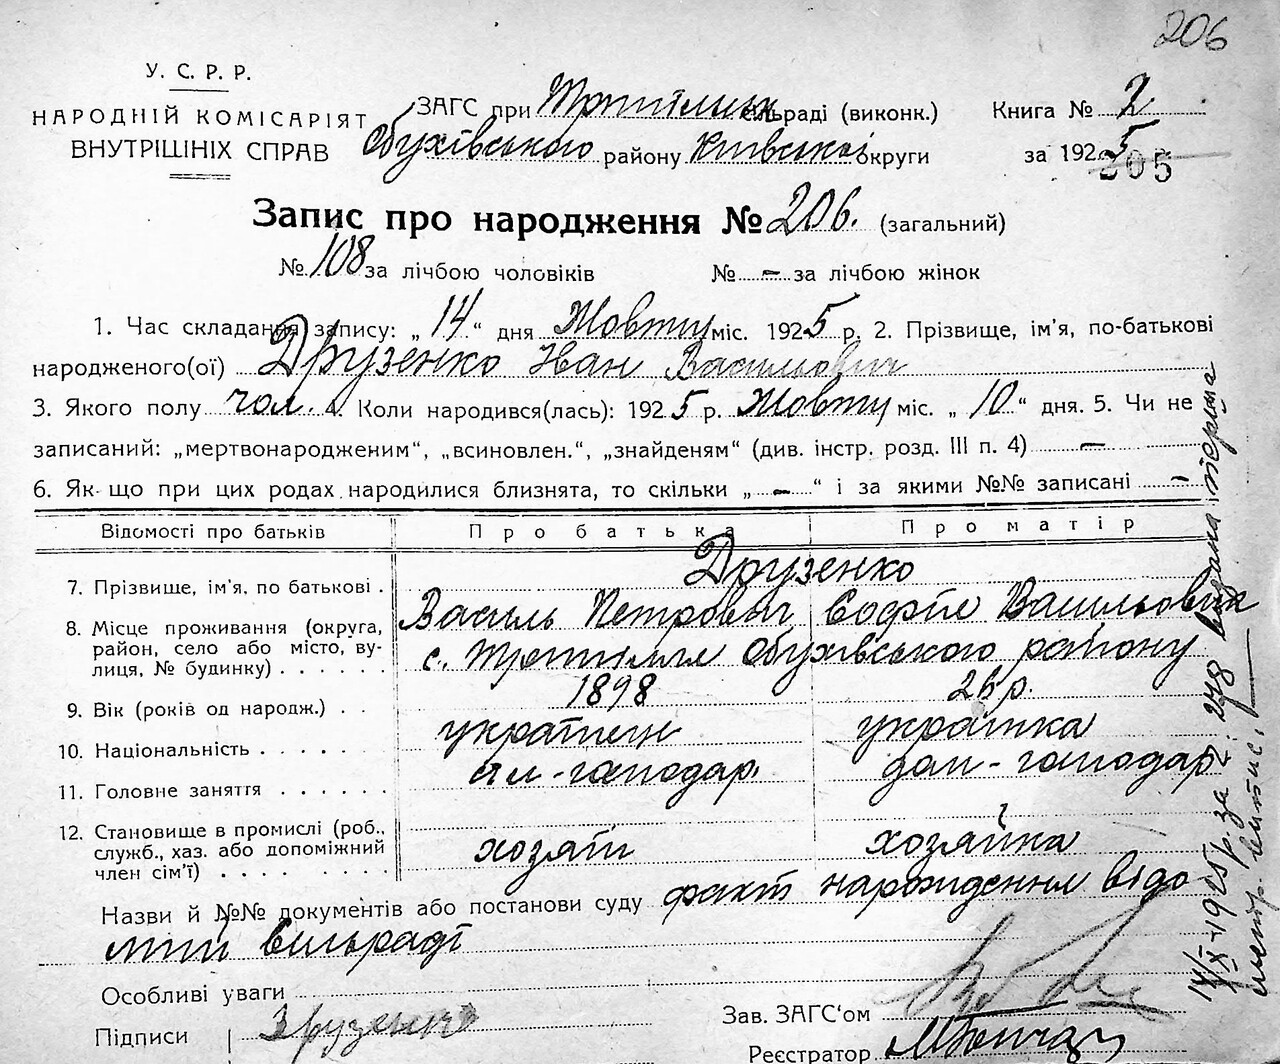 206
У. С. Р. Р.
НАРОДНІЙ КОМІСАРІЯТ
ВНУТРІШНІХ СПРАВ
ЗАГС при сільраді (виконк.)
Обухівського району Київської округи
Книга № 2
за 1925
205
Запис про народження № 206. (загальний)
№ 108 за лічбою чоловіків № – за лічбою жінок
1. Час складання запису: „14“ дня Жовтня міс. 1925 р. 2. Прізвище, ім'я, по-батькові
народженого(ої) Друзенко Іван Васильович
3. Якого полу чол. 4. Коли народився(лась): 1925 р. Жовтня міс. „10“ дня. 5. Чи не
записаний: „мертвонародженим“, „всиновлен.“, „знайденям“ (див. інстр. розд. III п. 4) –
6. Як-що при цих родах народилися близнята, то скільки „–“ і за якими №№ записані –
Відомості про батьків Про батька Про матір
Друзенко
7. Прізвище, ім'я, по батькові . Василь Петрович Софія Васильовна
8. Місце проживання (округа,
район, село або місто, ву-
лиця, № будинку) . . . . . . с. Обухівського району
9. Вік (років од народж.) . . 1898 26 р.
10. Національність . . . . . українець українка
11. Головне заняття . . . . . . сіл-господар. дом-господар
12. Становище в промислі (роб.,
служб., хаз. або допоміжний
член сім'ї) . . . . . . . . хозяїн хозяйка
Назви й №№ документів або постанови суду факт нарождення відо
мий сільраді
Особливі уваги
Підписи Друзенко
Зав. ЗАГС'ом
Реєстратор
14/X-1925 р. за №: 278 видана перша
метр. витис.